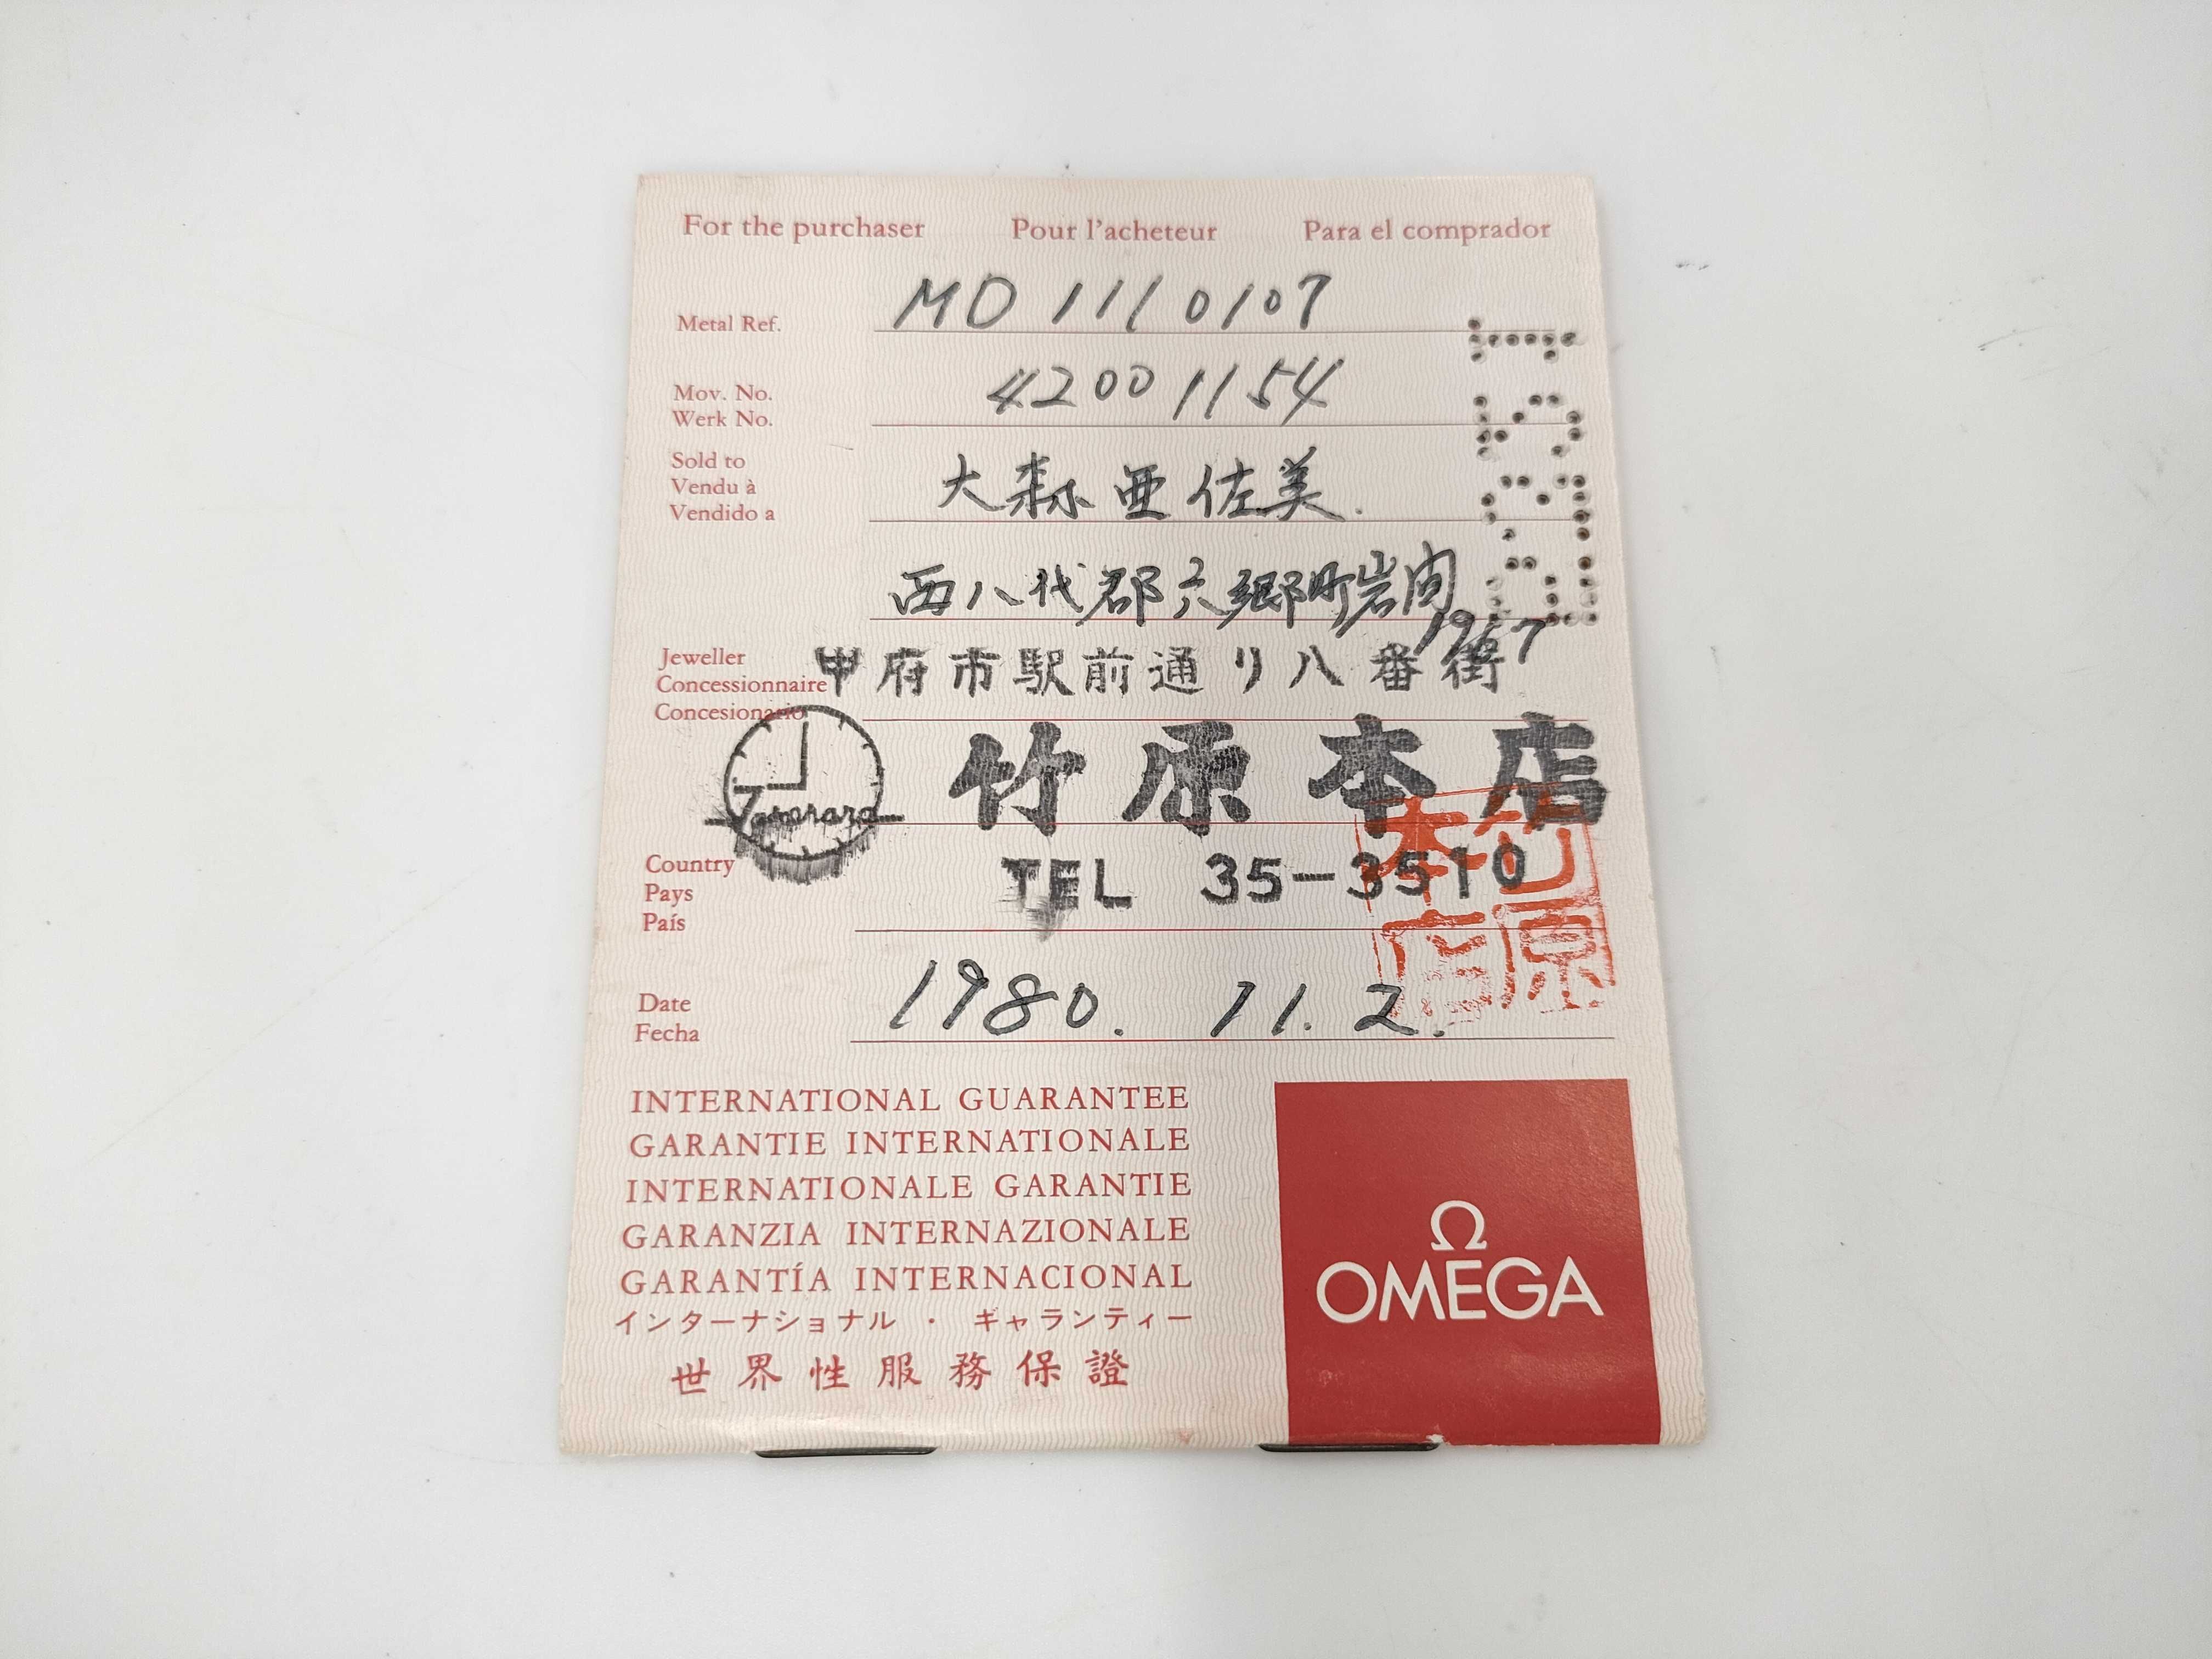 For the purchaser Pour l'acheteur Para el comprador
Metal Ref. MD 1110107
Mov. No.
Werk No. 42001154
Sold to
Vendu à
Vendido a
大森亜佐美.
西八代郡六郷町岩間
1967
Jeweller
Concessionnaire
Concesionario
甲府市駅前通り八番街
竹原本店
TEL 35-3510
竹原本店
Country
Pays
País
Date
Fecha
1980. 11. 2.
INTERNATIONAL GUARANTEE
GARANTIE INTERNATIONALE
INTERNATIONALE GARANTIE
GARANZIA INTERNAZIONALE
GARANTÍA INTERNACIONAL
インターナショナル・ギャランティー
世界性服務保證
Ω
OMEGA